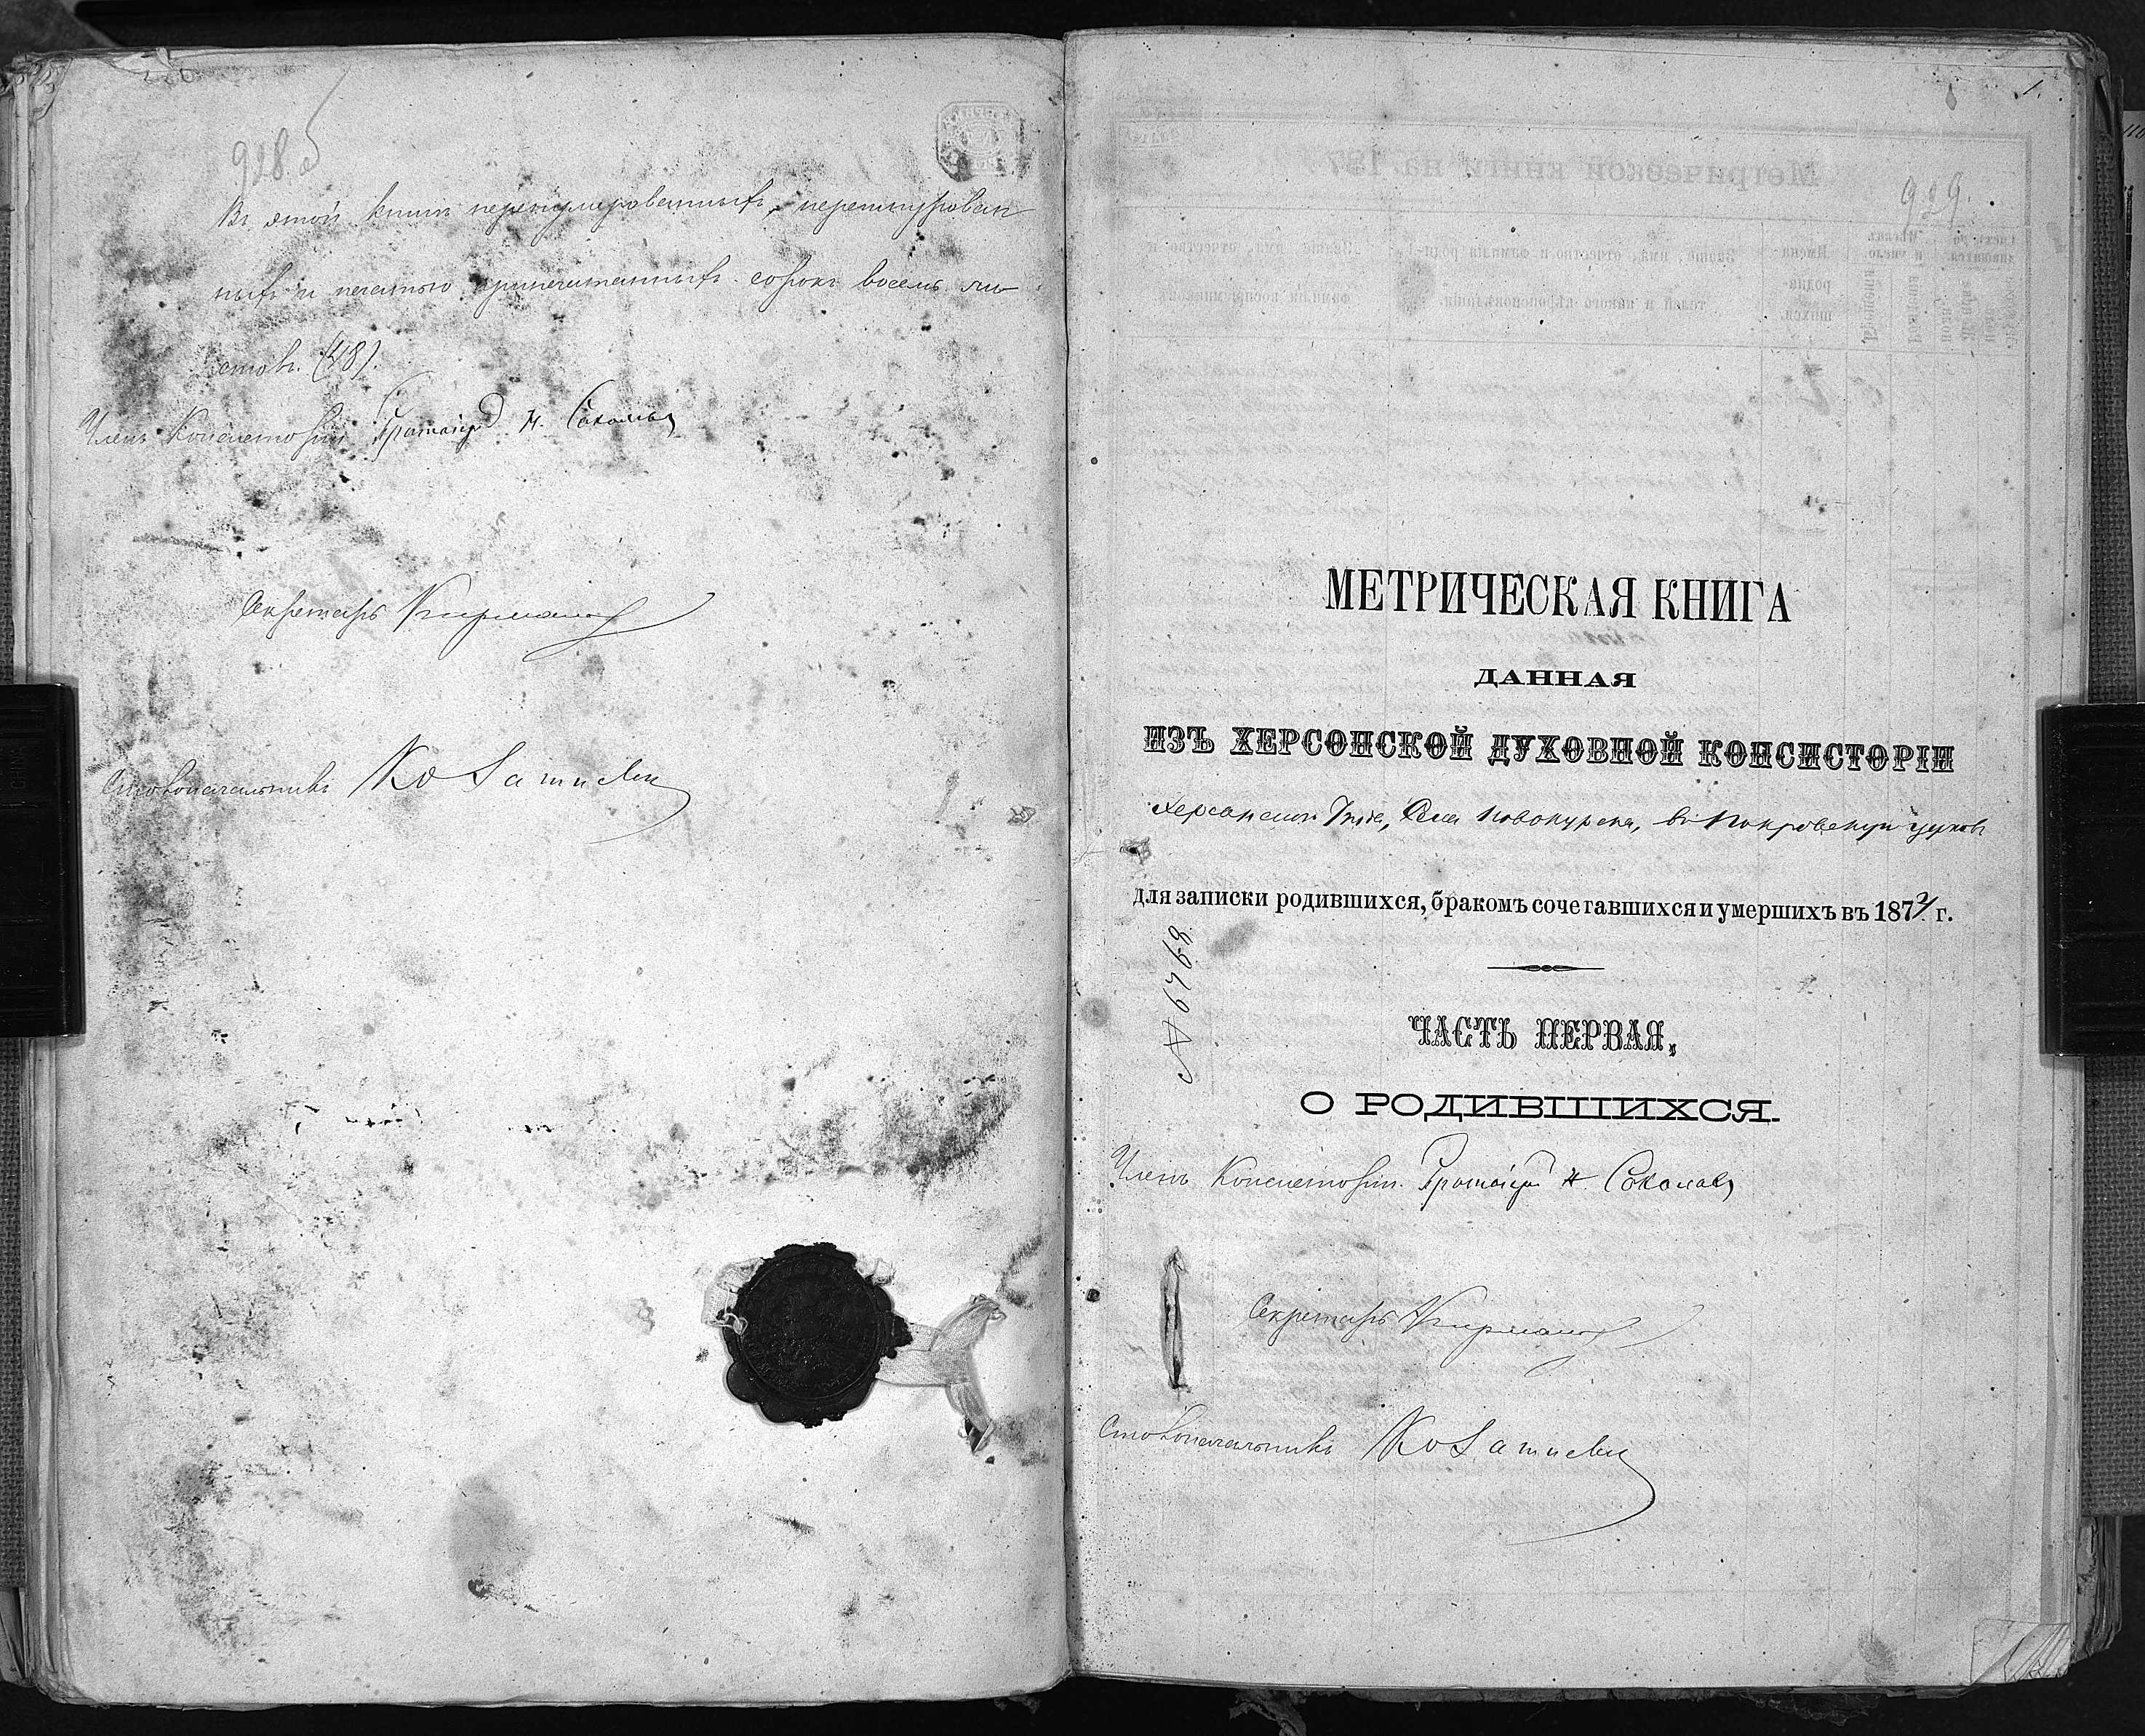 928 об
Въ этой книгѣ перенумерованныхъ, перешнурован
ныхъ и печатью припечатанныхъ сорокъ восемь ли
стовъ. (48).
Членъ Консисторіи Протоіерей Н. Соколовъ
Секретарь
Столоначальникъ
1.
929.
МЕТРИЧЕСКАЯ КНИГА
ДАННАЯ
ИЗЪ ХЕРСОНСКОЙ ДУХОВНОЙ КОНСИСТОРІИ
Херсонскаго Уѣзда, Села Новокурска, въ Покровскую церковь
для записки родившихся, бракомъ сочетавшихся и умершихъ въ 187 г.
№ 6768
ЧАСТЬ ПЕРВАЯ,
О РОДИВШИХСЯ.
Членъ Консисторіи Протоіерей Н. Соколовъ
Секретарь
Столоначальникъ